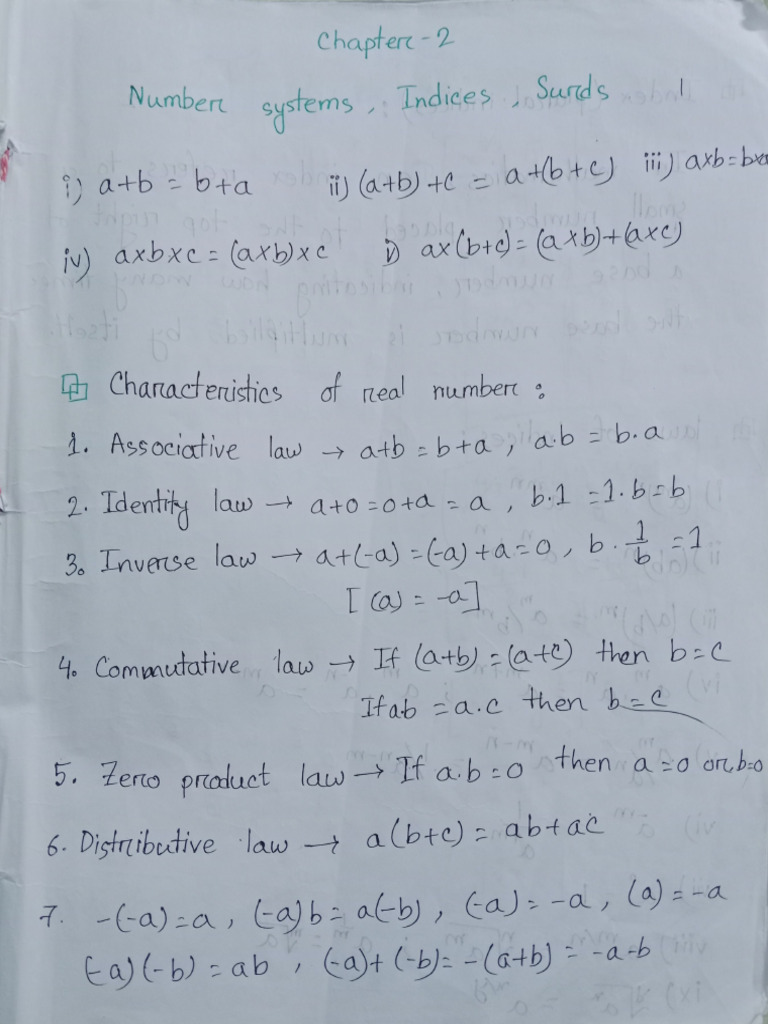 Chapter-2
Number systems, Indices, Surds
i) a+b = b+a ii) (a+b)+c = a+(b+c) iii) a×b=b×a
iv) a×b×c = (a×b)×c v) a×(b+c)=(a×b)+(a×c)
Characteristics of real number:
1. Associative law → a+b = b+a, a.b = b.a
2. Identity law → a+0=0+a = a, b.1 =1.b=b
3. Inverse law → a+(-a) =(-a)+a=0, b. 1/b =1
[(a) = -a]
4. Commutative law → If (a+b) =(a+c) then b=c
If ab = a.c then b=c
5. Zero product law → If a.b=0 then a=0 or b=0
6. Distributive law → a(b+c) = ab+ac
7. -(-a)=a, (-a)b= a(-b), (-a)= -a, (a)=-a
(-a)(-b) = ab, (-a)+(-b)= -(a+b) = -a-b